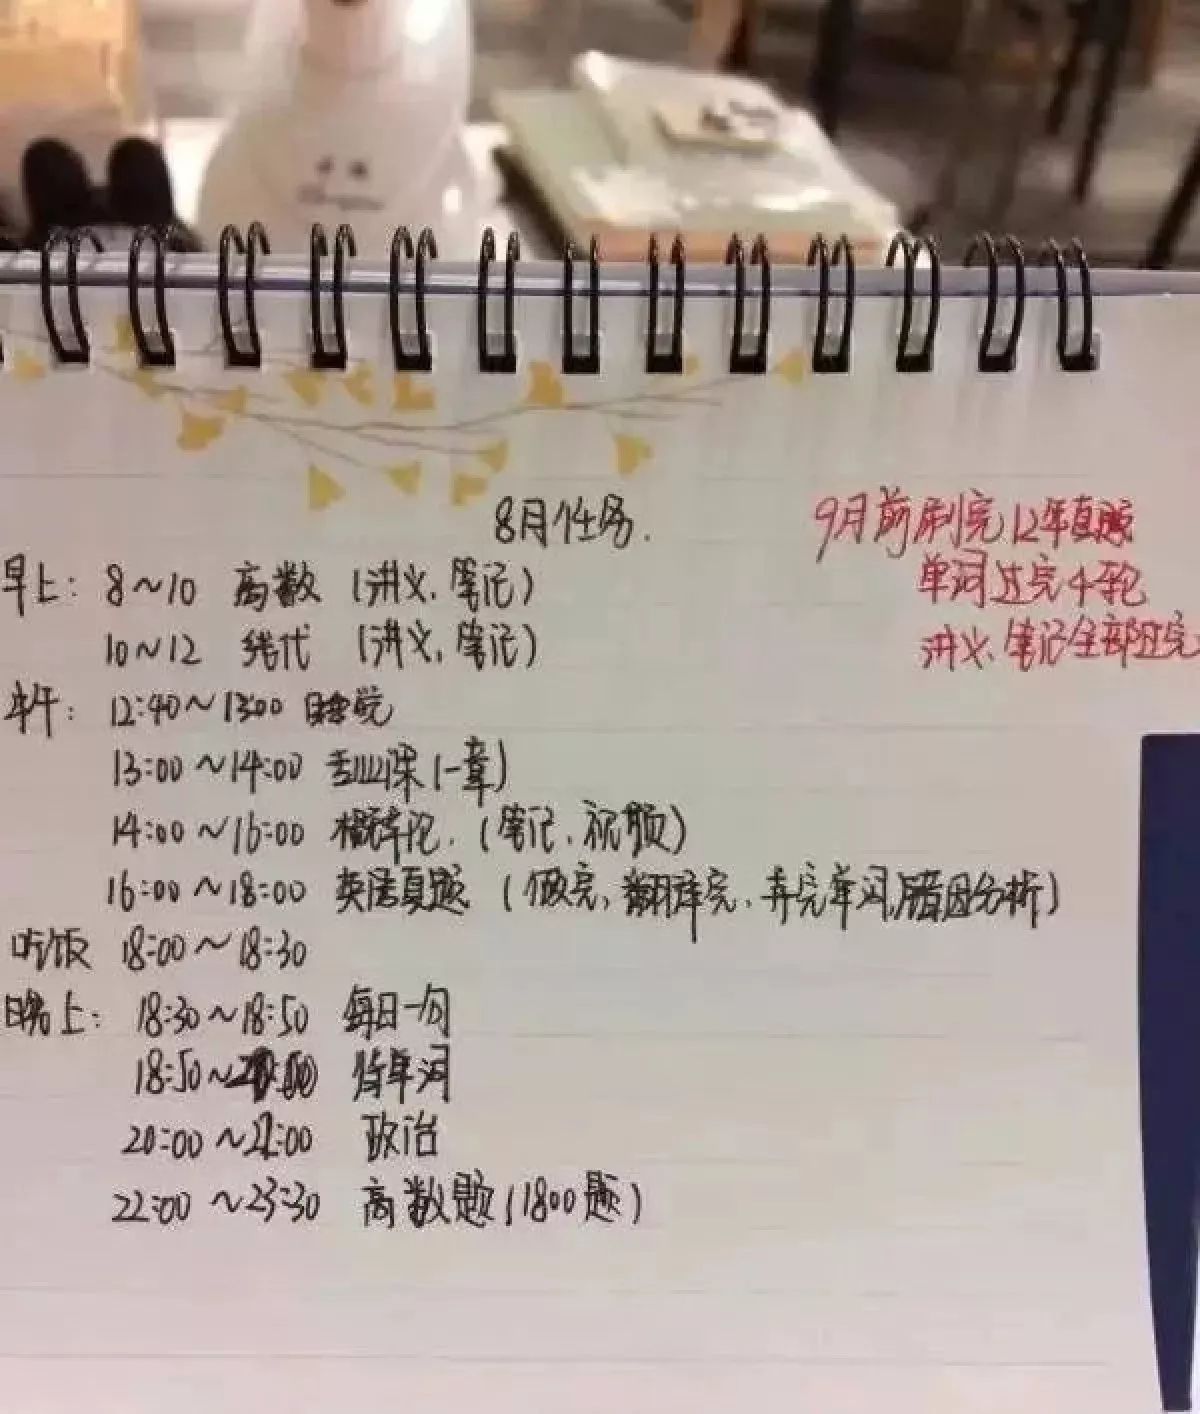 8月任务.
9月前刷完12年真题
单词过完4轮
讲义、笔记全部过完
早上: 8~10 高数 (讲义,笔记)
10~12 线代 (讲义,笔记)
12:40~13:00 睡觉
13:00~14:00 专业课(一章)
14:00~16:00 概率论. (笔记、视频)
16:00~18:00 英语真题 (做完, 翻译完, 弄完单词,错因分析)
吃饭 18:00~18:30
晚上: 18:30~18:50 每日一句
18:50~ 背单词
20:00~21:00 政治
22:00~23:30 高数题(1800题)